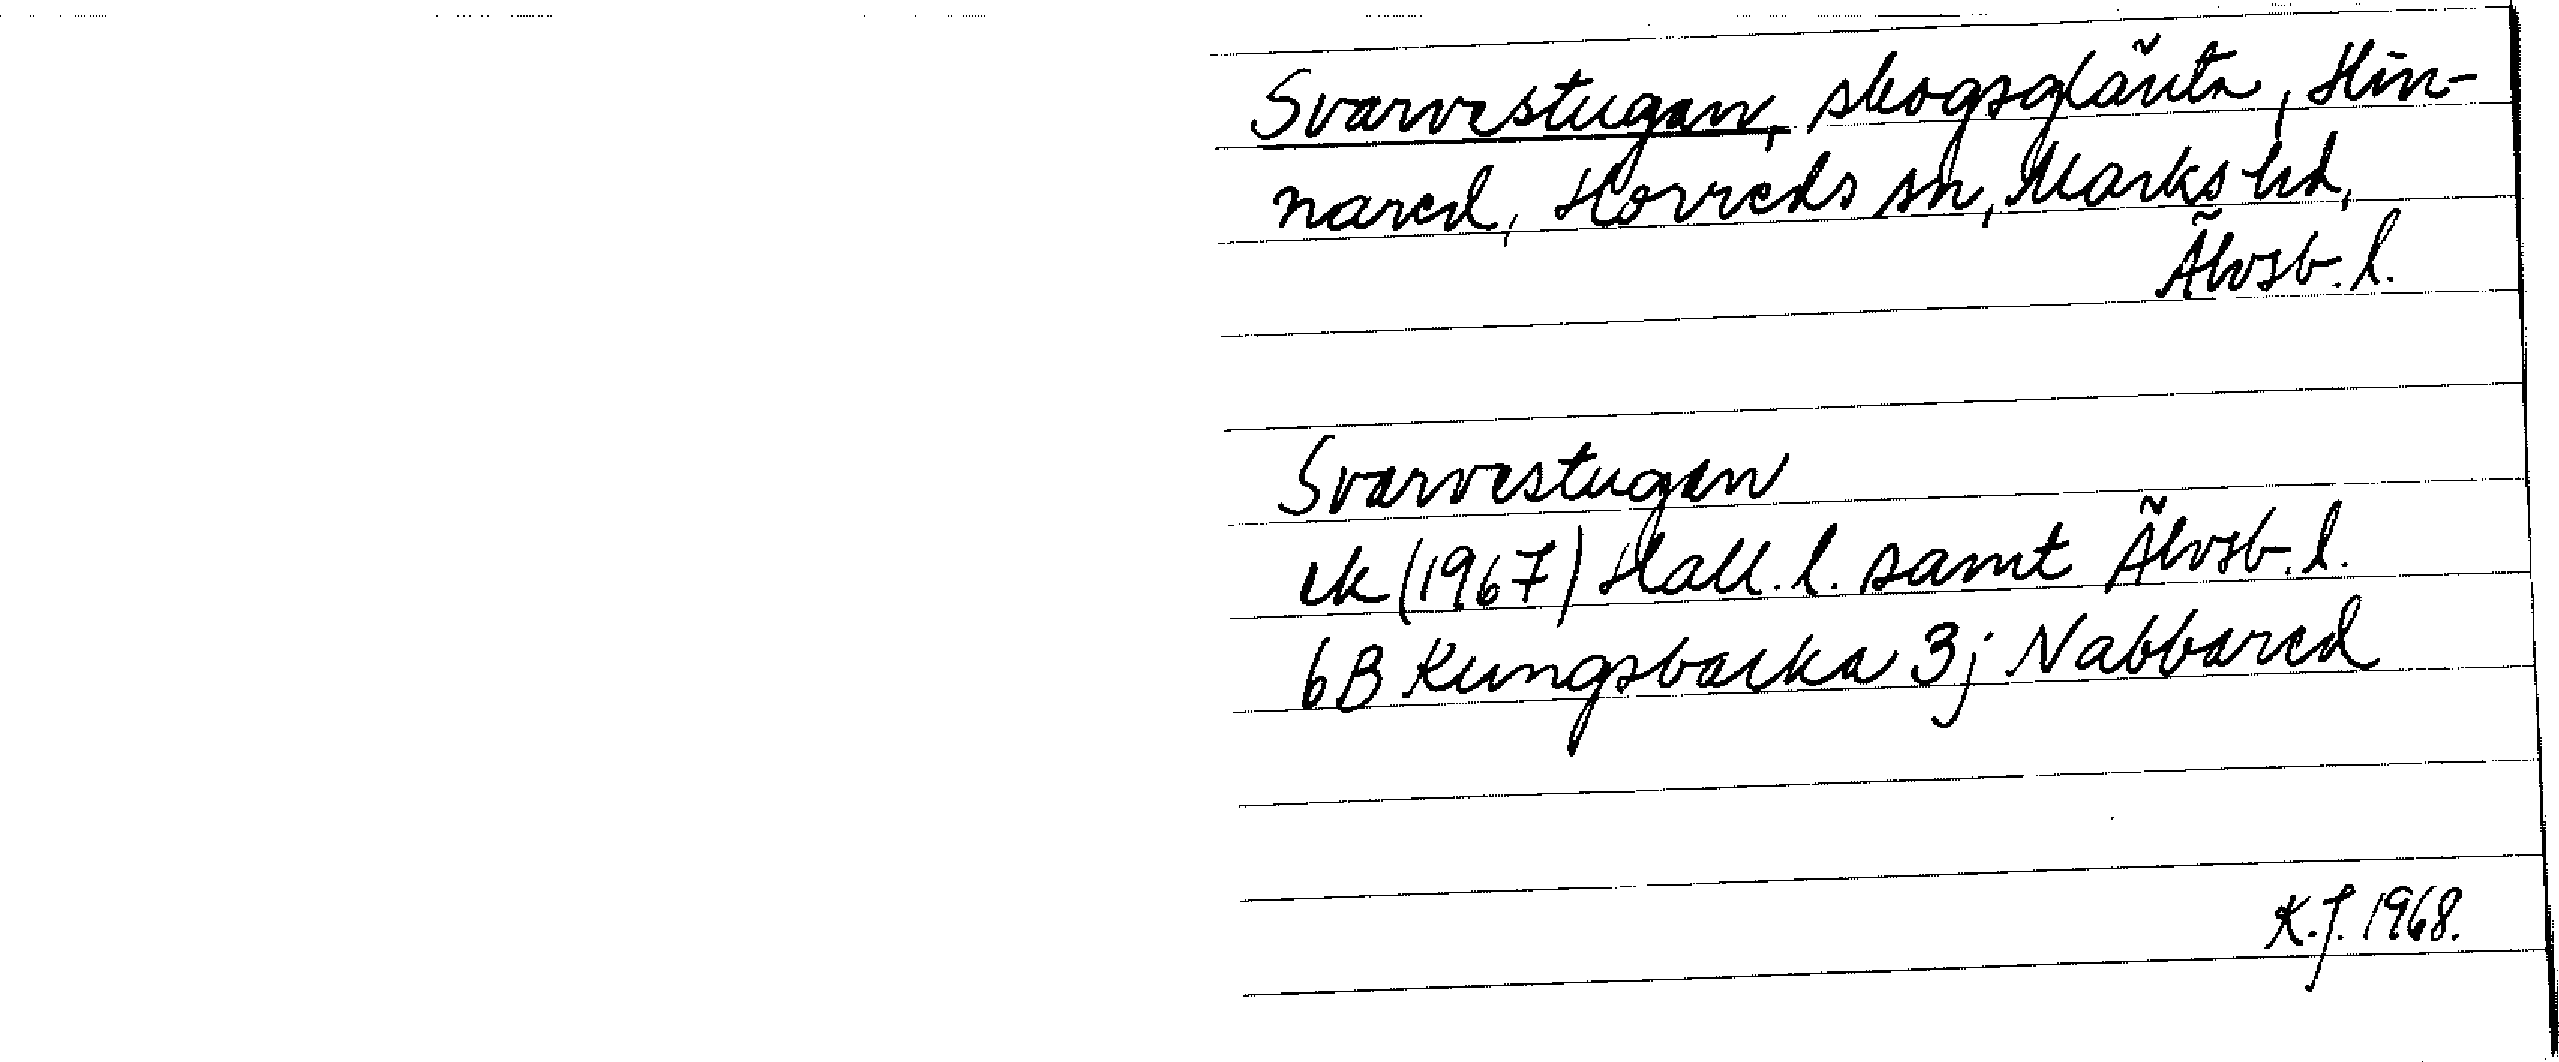 Svarvestugan, skogsglänta, Hin-
nared, Horreds sn, Marks hd,
Älvsb. l.
Svarvestugan
ek (1967) Hall. l. samt Älvsb. l.
6B Kungsbacka 3j Nabbared
K.J. 1968.